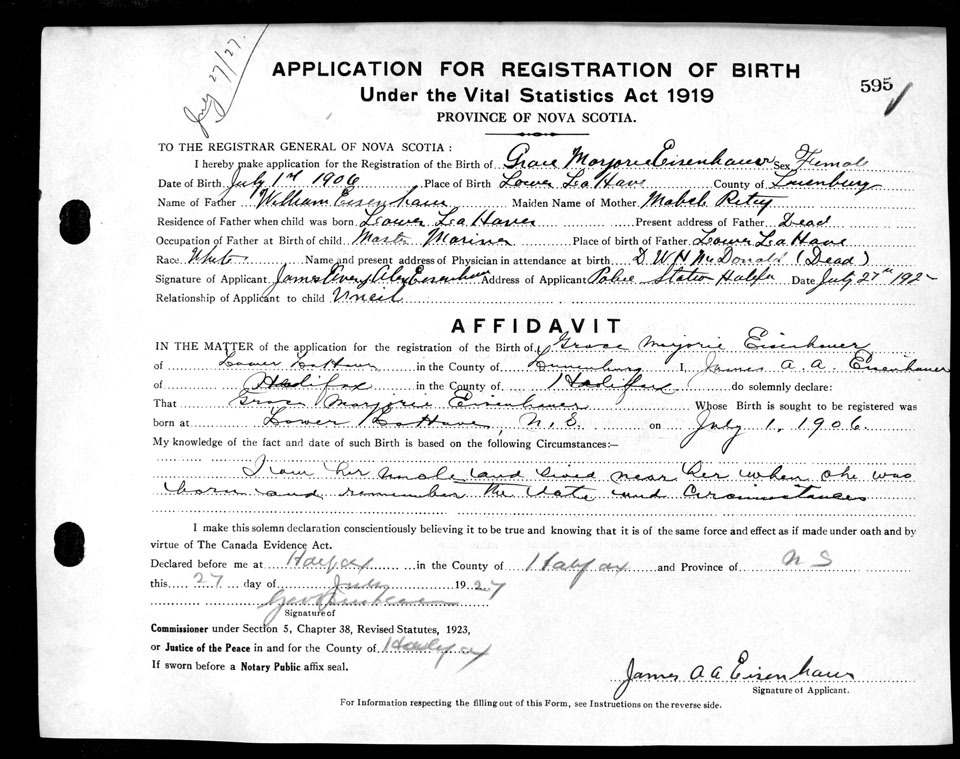 July 27/27.
APPLICATION FOR REGISTRATION OF BIRTH
595
Under the Vital Statistics Act 1919
PROVINCE OF NOVA SCOTIA.
TO THE REGISTRAR GENERAL OF NOVA SCOTIA :
I hereby make application for the Registration of the Birth of Grace Marjorie Eisenhauer Sex Female
Date of Birth July 1st 1906 Place of Birth Lower La Have County of Lunenburg
Name of Father William Eisenhauer Maiden Name of Mother Mabel
Residence of Father when child was born Lower La Have Present address of Father Dead
Occupation of Father at Birth of child Master Mariner Place of birth of Father Lower La Have
Race White Name and present address of Physician in attendance at birth D W H McDonald (Dead)
Signature of Applicant James Avery Alex Eisenhauer Address of Applicant Police Station Halifax Date July 27th 192
Relationship of Applicant to child Uncle
AFFIDAVIT
IN THE MATTER of the application for the registration of the Birth of Grace Marjorie Eisenhauer
of Lower LaHave in the County of Lunenburg I, James A. A. Eisenhauer
of Halifax in the County of Halifax do solemnly declare:
That Grace Marjorie Eisenhauer Whose Birth is sought to be registered was
born at Lower LaHave, N. S. on July 1, 1906.
My knowledge of the fact and date of such Birth is based on the following Circumstances:—
I am her uncle and lived near her when she was
born and remember the date and circumstances
I make this solemn declaration conscientiously believing it to be true and knowing that it is of the same force and effect as if made under oath and by
virtue of The Canada Evidence Act.
Declared before me at Halifax in the County of Halifax and Province of N S
this 27 day of July 1927
Signature of
Commissioner under Section 5, Chapter 38, Revised Statutes, 1923,
or Justice of the Peace in and for the County of Halifax
If sworn before a Notary Public affix seal.
James A A Eisenhauer
Signature of Applicant.
For Information respecting the filling out of this Form, see Instructions on the reverse side.